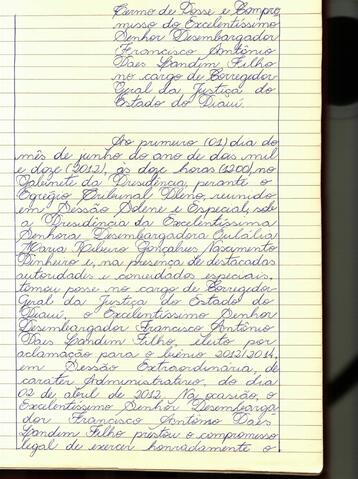 Termo de Posse e Compro
misso do Excelentíssimo
Senhor Desembargador
Francisco Antônio
Paes Landim Filho
no cargo de Corregedor
Geral da Justiça do
Estado do Piauí.
Ao primeiro (01) dia do
mês de junho do ano de dois mil
e doze (2012), às doze horas (12:00), no
Gabinete da Presidência, perante o
Egrégio Tribunal Pleno, reunido
em Sessão Solene e Especial, sob
a Presidência da Excelentíssima
Senhora Desembargadora Eulália
Maria Ribeiro Gonçalves Nascimento
Pinheiro e, na presença de destacadas
autoridades e convidados especiais,
tomou posse no cargo de Corregedor
Geral da Justiça do Estado do
Piauí, o Excelentíssimo Senhor
Desembargador Francisco Antônio
Paes Landim Filho, eleito por
aclamação para o biênio 2012/2014,
em Sessão Extraordinária, de
caráter Administrativo, do dia
02 de abril de 2012. Na ocasião, o
Excelentíssimo Senhor Desembarga
dor Francisco Antônio Paes
Landim Filho prestou o compromisso
legal de exercer honradamente o